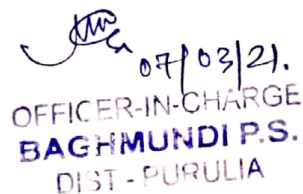 07/03/21.
OFFICER-IN-CHARGE
BAGHMUNDI P.S.
DIST - PURULIA